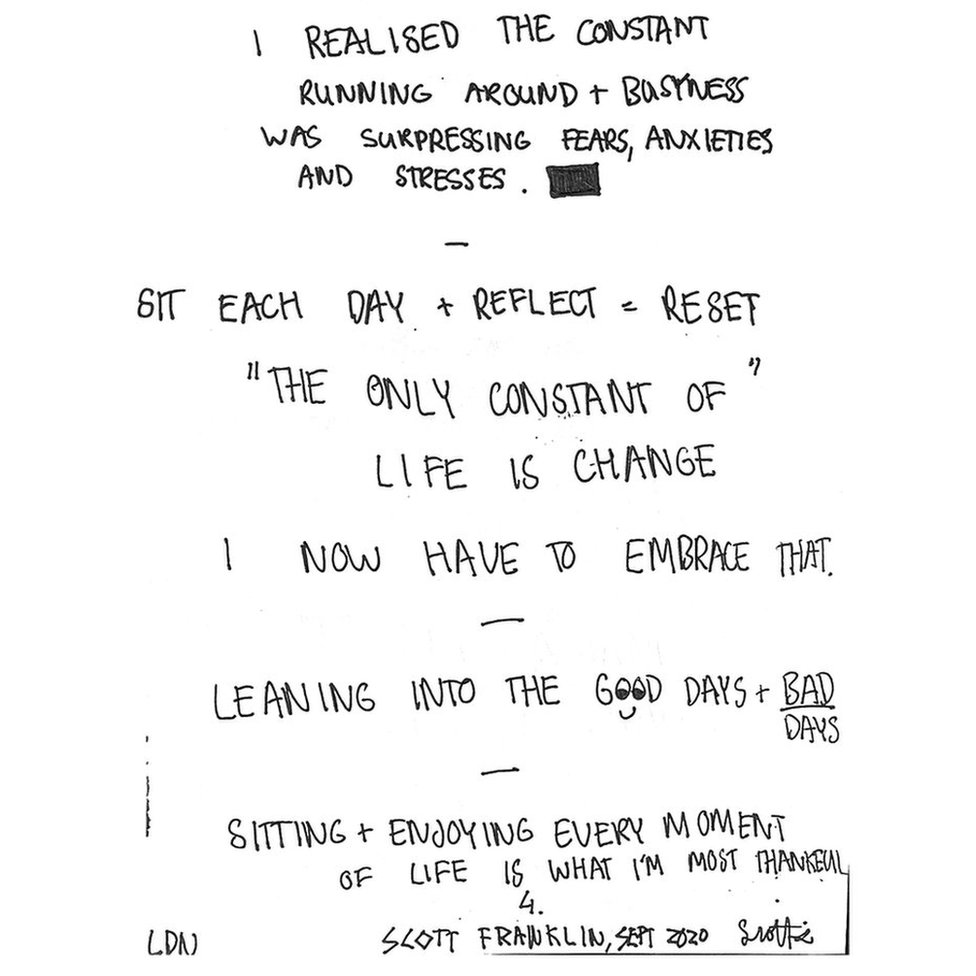 I REALISED THE CONSTANT
RUNNING AROUND + BUSYNESS
WAS SURPRESSING FEARS, ANXIETIES
AND STRESSES.
—
SIT EACH DAY + REFLECT = RESET
"THE ONLY CONSTANT OF"
LIFE IS CHANGE
I NOW HAVE TO EMBRACE THAT.
—
LEANING INTO THE GOOD DAYS + BAD
DAYS
—
SITTING + ENJOYING EVERY MOMENT
OF LIFE IS WHAT I'M MOST THANKFUL
4.
LDN SCOTT FRANKLIN, SEPT 2020 Scottie